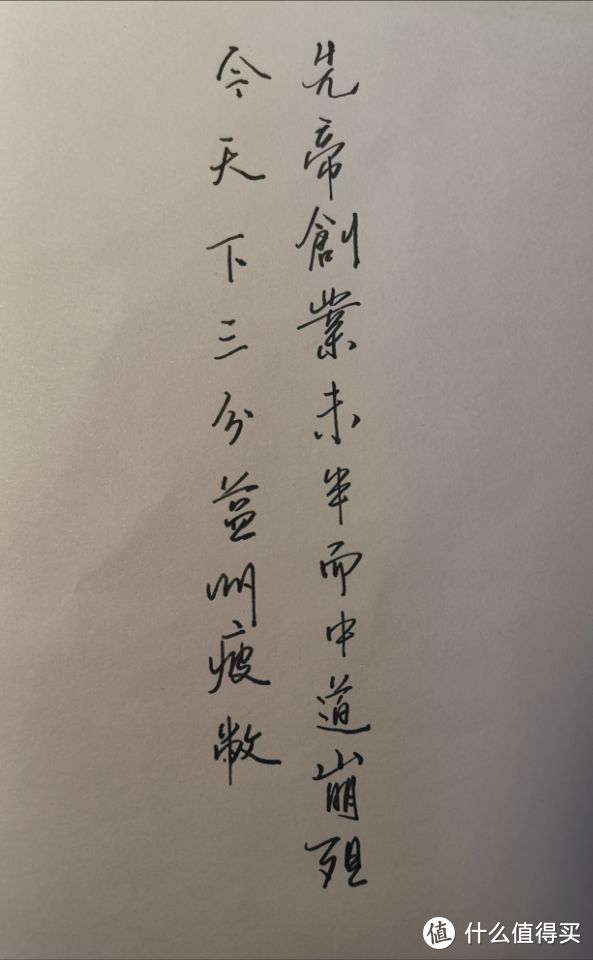 先帝創業未半而中道崩殂
今天下三分益州疲敝
值 什么值得买